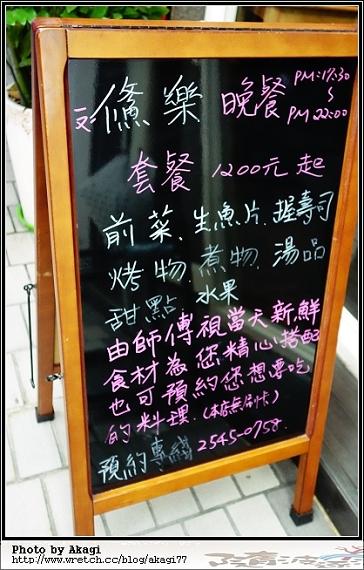 鱻樂 晚餐 PM:17:30
~
PM 22:00
套餐 1200元起
前菜、生魚片、握壽司
烤物、煮物、湯品
甜點 水果
由師傅視當天新鮮
食材為您精心搭配
也可預約您想要吃
的料理.(本店無刷卡)
預約專線 2545-0758.
Photo by Akagi
http://www.wretch.cc/blog/akagi77